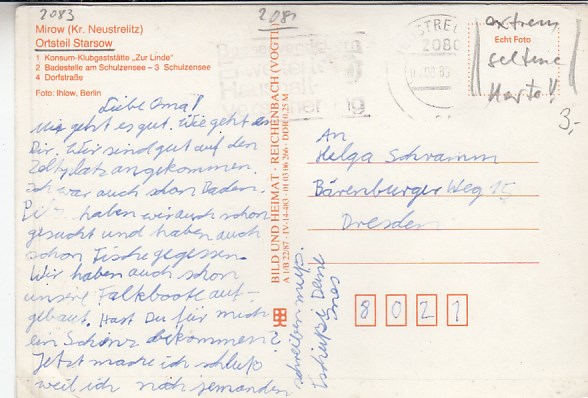 2083
2081
Mirow (Kr. Neustrelitz)
Ortsteil Starsow
1 Konsum-Klubgaststätte „Zur Linde"
2 Badestelle am Schulzensee – 3 Schulzensee
4 Dorfstraße
Foto: Ihlow, Berlin
Liebe Oma!
Mir geht es gut. Wie geht es
Dir. Wir sind gut auf den
Zeltplatz angekommen.
Ich war auch schon Baden.
Pilze haben wir auch schon
gesucht und haben auch
schon Fische gegessen.
Wir haben auch schon
unsere Faltboote auf-
gebaut. Hast Du für mich
ein bekommen?
Jetzt mache ich schluß
weil ich noch jemanden
schreiben muß.
Tschüß Deine
Ines
BILD UND HEIMAT · REICHENBACH (VOGTL
A 1/B 22/87 · IV-14-483 · 01 03 06 266 · DDR 0,25 M
2080
Echt Foto
extrem
seltene
Karte!!
3,-
An
Helga Schramm
Bärenburger Weg
Dresden
8021